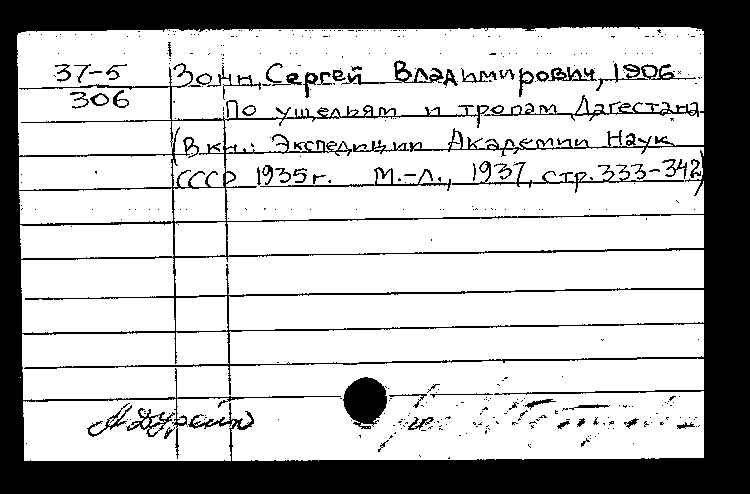 37-5
306
Зонн, Сергей Владимирович, 1906
По ущельям и тропам Дагестана
(В кн.: Экспедиции Академии Наук
СССР 1935 г. М.-Л., 1937, стр. 333-342)